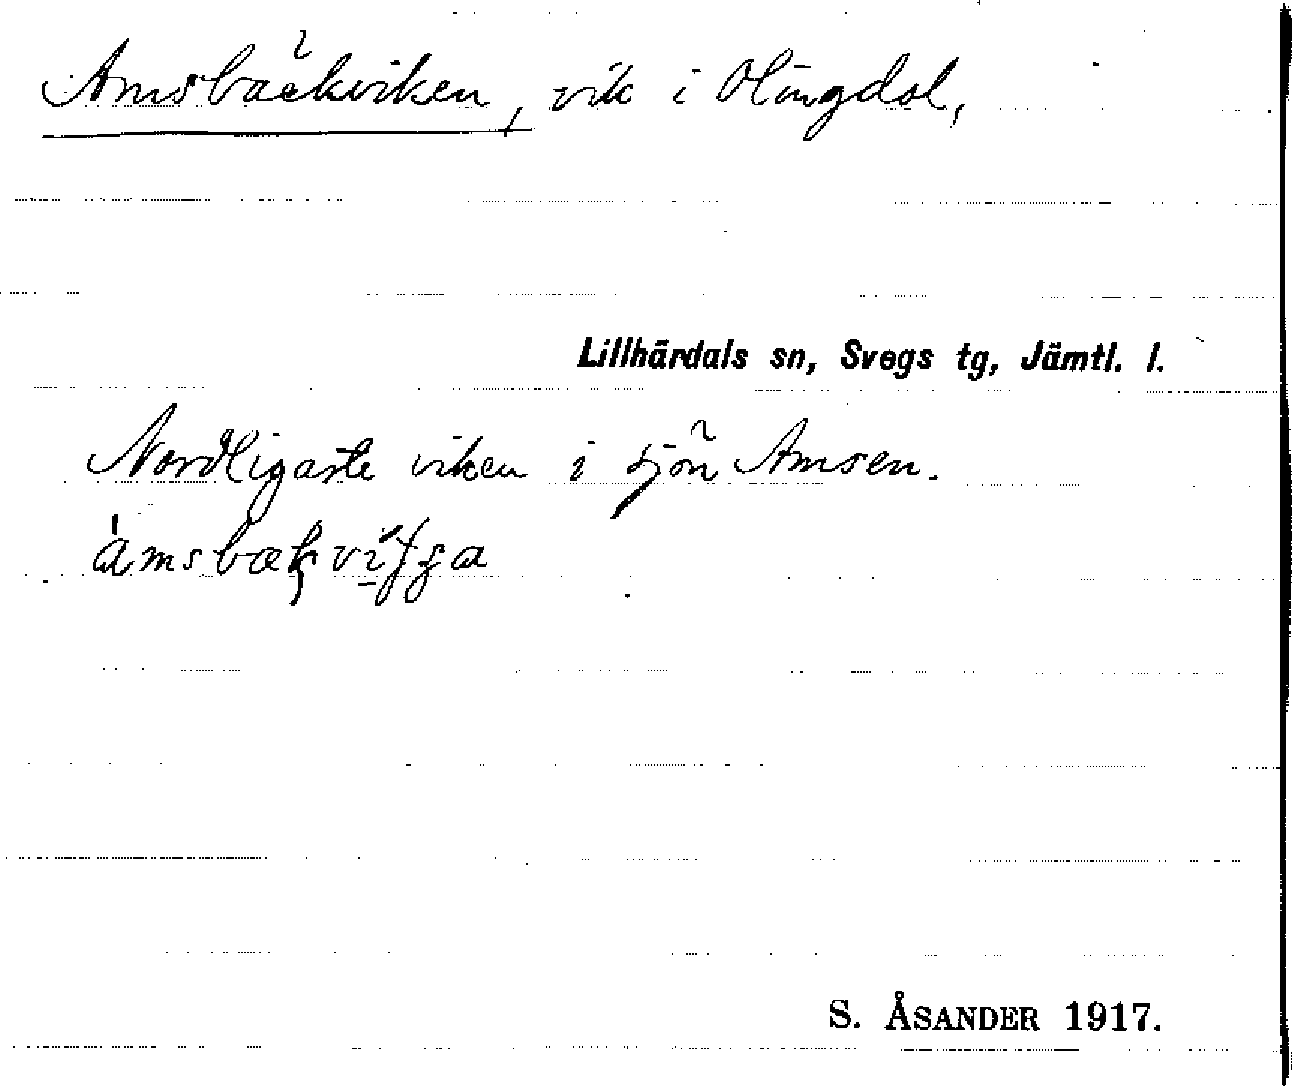 Amsbäckviken, vik i Olingdal,
Lillhärdals sn, Svegs tg, Jämtl. l.
Nordligaste viken i sjön Amsen.
S. ÅSANDER 1917.